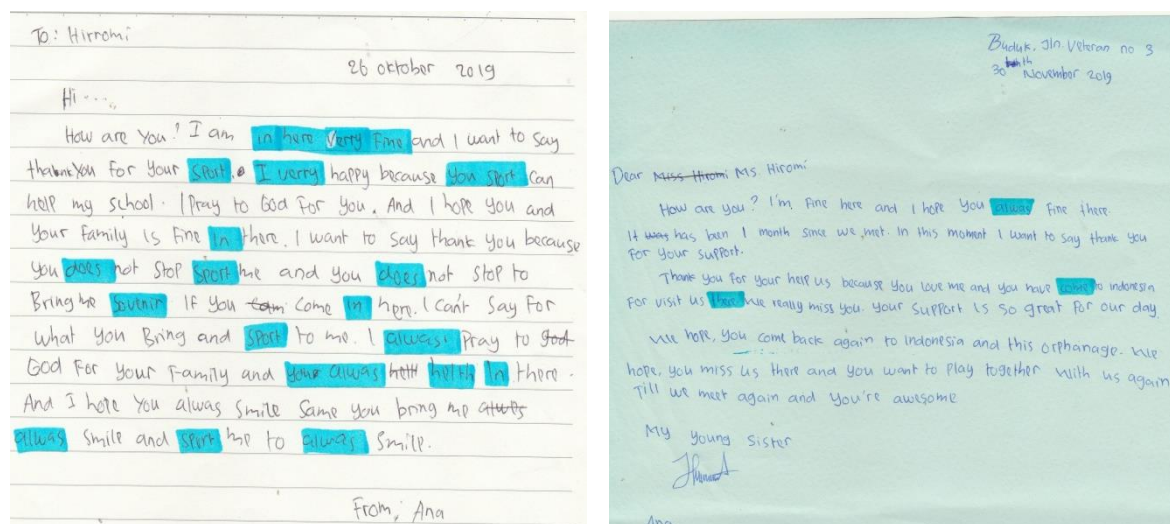 To: Hirromi
26 oktober 2019
Hi ....,
How are you? I am in here Verry Fine and I want to say
thank you For Your sport. I verry happy because you sport can
help my school. I pray to God For you. And I hope you and
Your family is Fine in there. I want to say thank you because
you does not stop sport me and you does not stop to
Bring me Souvnir IF you come in here. I can't say For
what you Bring and sport to me. I alwas pray to god
God For Your Family and your alwas helth in there.
And I hope You alwas Smile same you bring me alwas
alwas smile and sport me to alwas smile.
From, Ana
Buduk, Jln. Veteran no 3
30 th November 2019
Dear Miss Hiromi Ms. Hiromi
How are you? I'm Fine here and I hope you alwas Fine there.
It was has been 1 month since we met. In this moment I want to say thank you
for your support.
Thank you for your help us because you love me and you have come to indonesia
for visit us there We really miss you. Your support is so great for our day.
We hope, you come back again to Indonesia and this orphanage. We
hope. you miss us there and you want to play together with us again
Till we meet again and you're awesome
My Young Sister
Ana